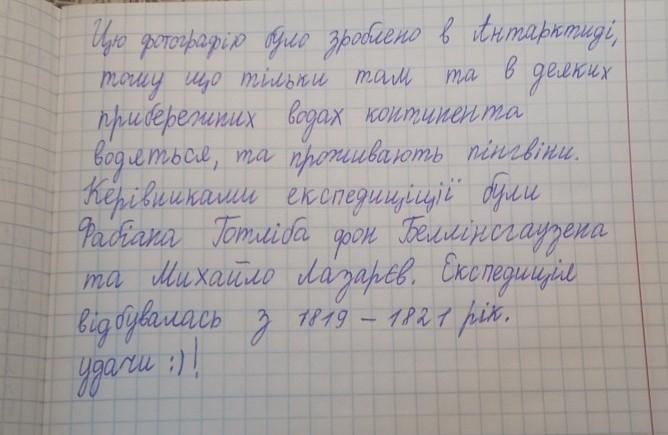 Цю фотографію було зроблено в Антарктиді,
тому що тільки там та в деяких
прибережних водах континента
водяться, та проживають пінгвіни.
Керівниками експедиціції були
Фабіана Готліба фон Беллінсгаузена
та Михайло Лазарєв. Експедиція
відбувалась з 1819 – 1821 рік.
удачи :)!